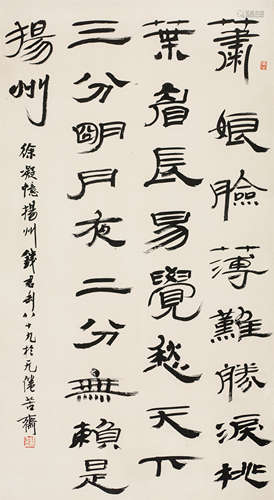 蕭娘臉薄難勝淚桃
葉眉長易覺愁天下
三分明月夜二分無賴是
揚州
徐凝憶揚州 錢君匋八十九於无倦苦齋